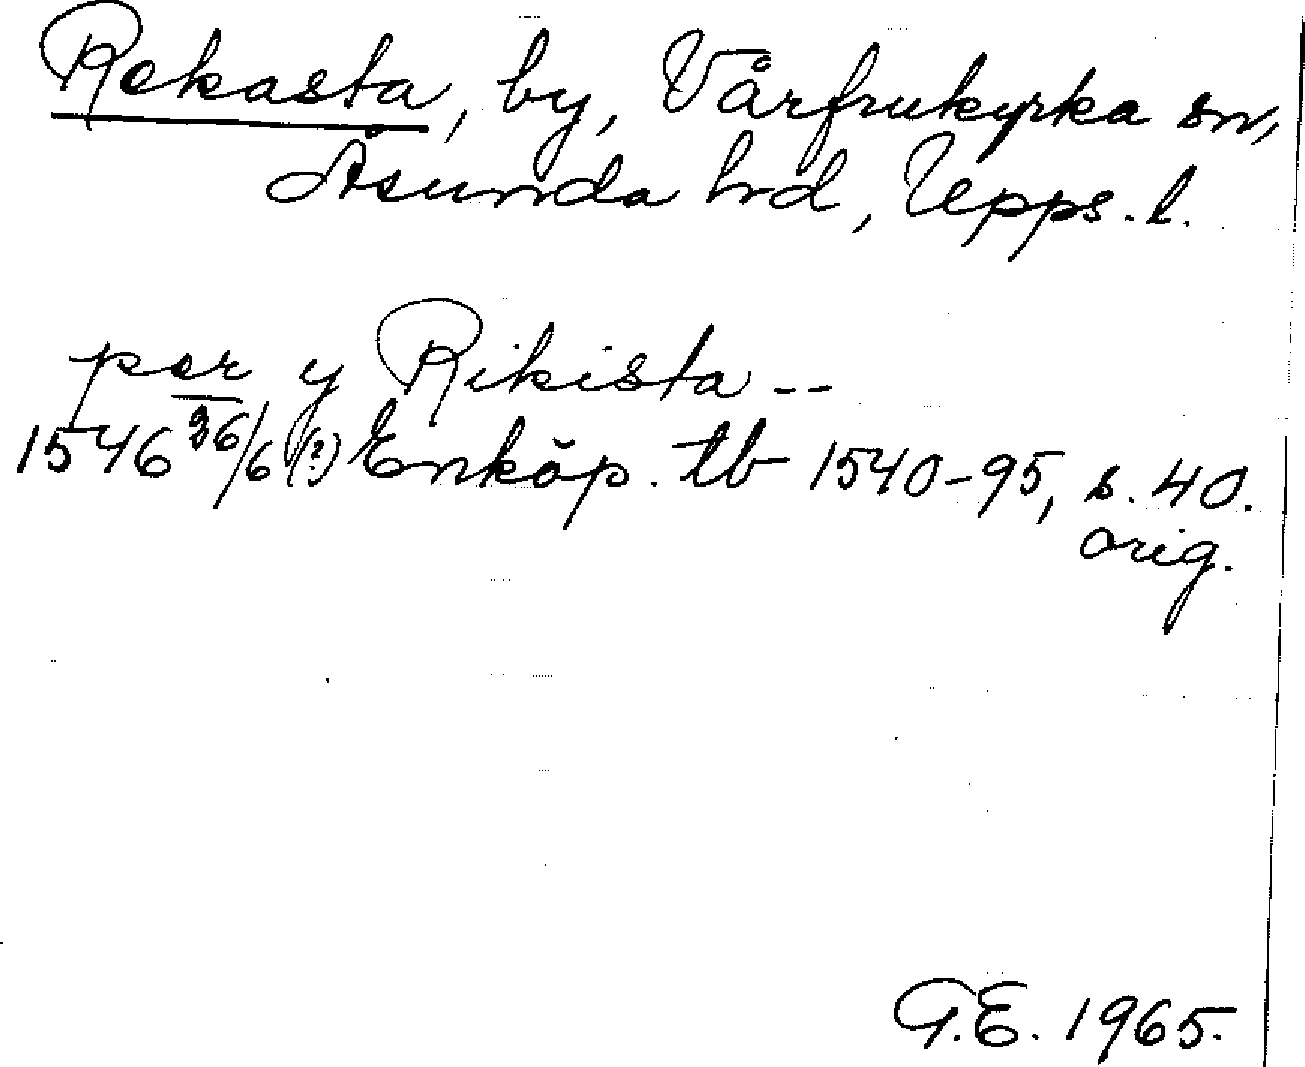 Rekasta, by, Vårfrukyrka sn,
Åsunda hd, Upps. l.
per y Rikista --
1546 36/6 (?) Enköp. tb 1540-95, s. 40.
orig.
G.E. 1965.